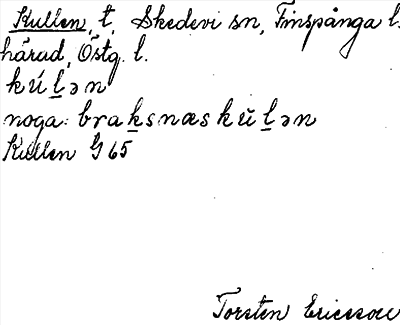 Kullen, t, Skedevi sn, Finspånga l.
härad, Östg. l.
kúḻən
noga: braḵsnæskŭḻən
Kullen G 65
Torsten Ericsson